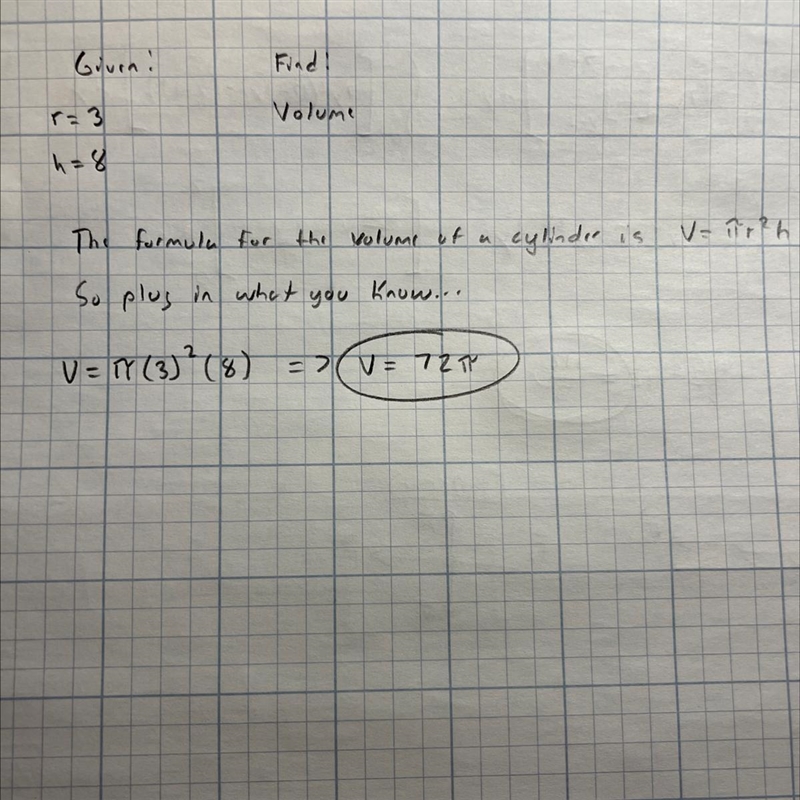 Given: Find:
r = 3 Volume
h = 8
The formula for the volume of a cylinder is V = πr²h
So plug in what you know...
V = π(3)²(8) => V = 72π